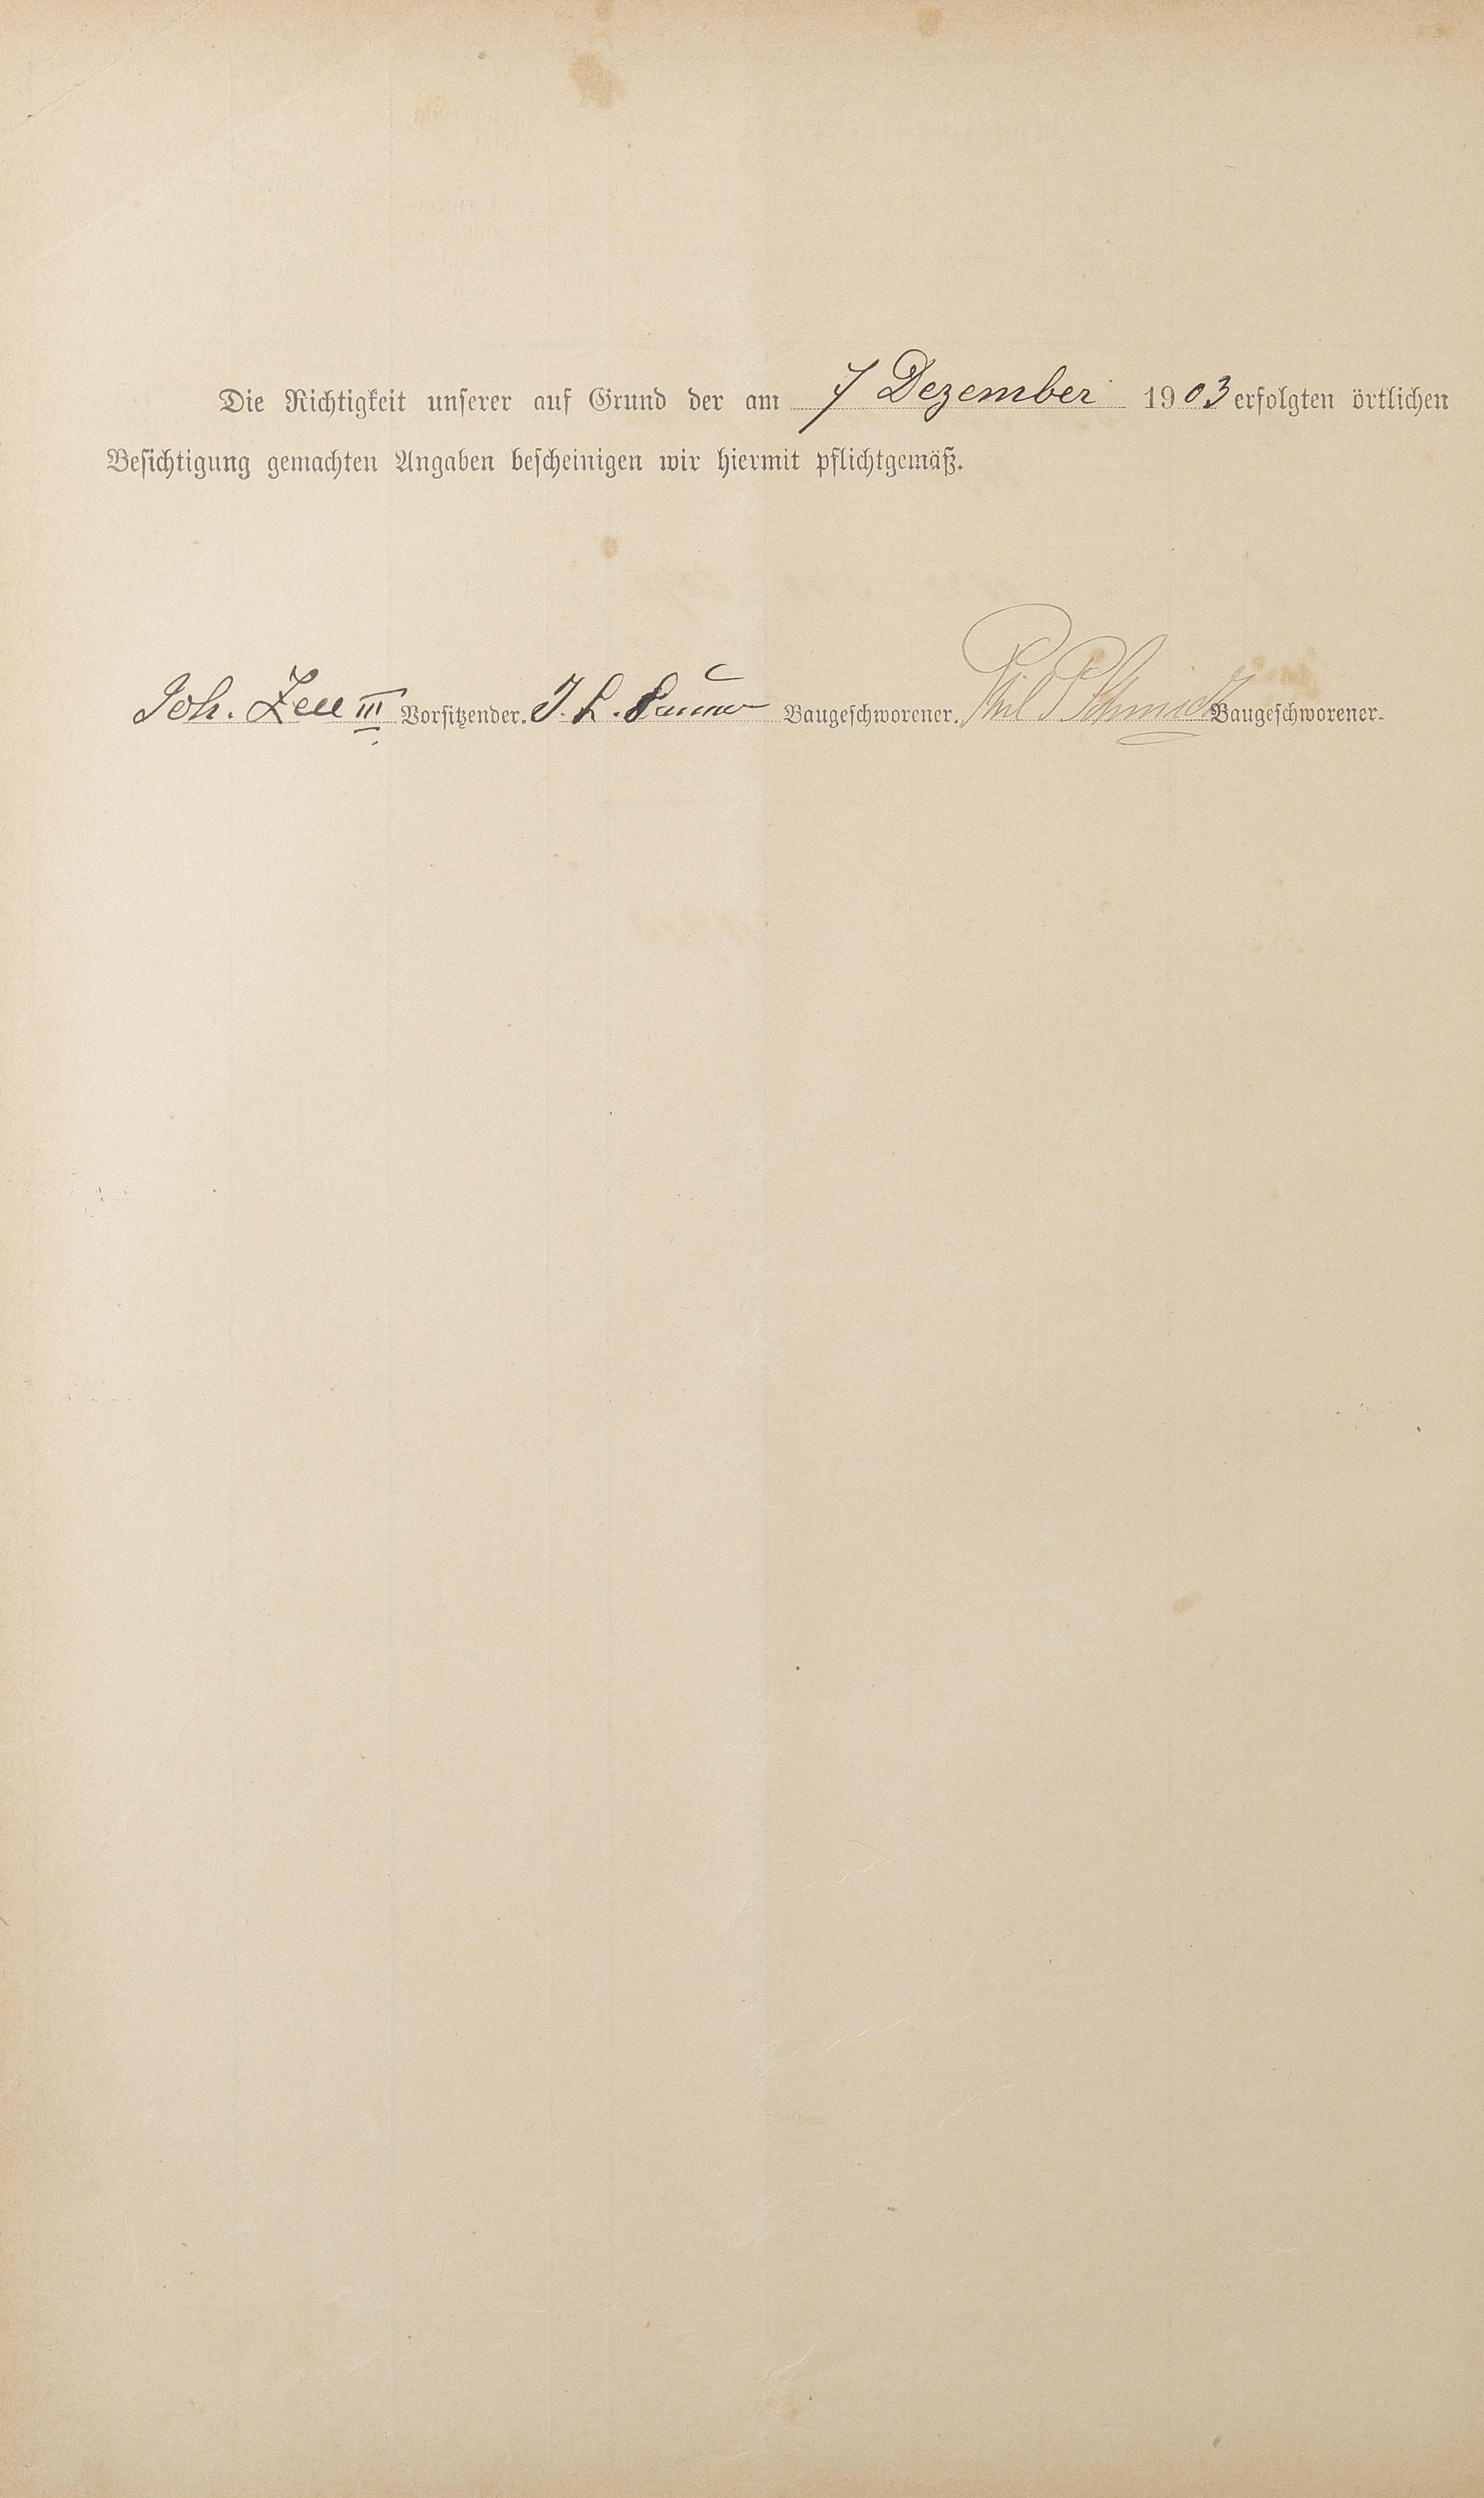 Die Richtigkeit unserer auf Grund der am 7 Dezember 1903 erfolgten örtlichen
Besichtigung gemachten Angaben bescheinigen wir hiermit pflichtgemäß.
Joh. Zell III Vorsitzender. J. L. Baugeschworener. Phil Schmidt Baugeschworener.